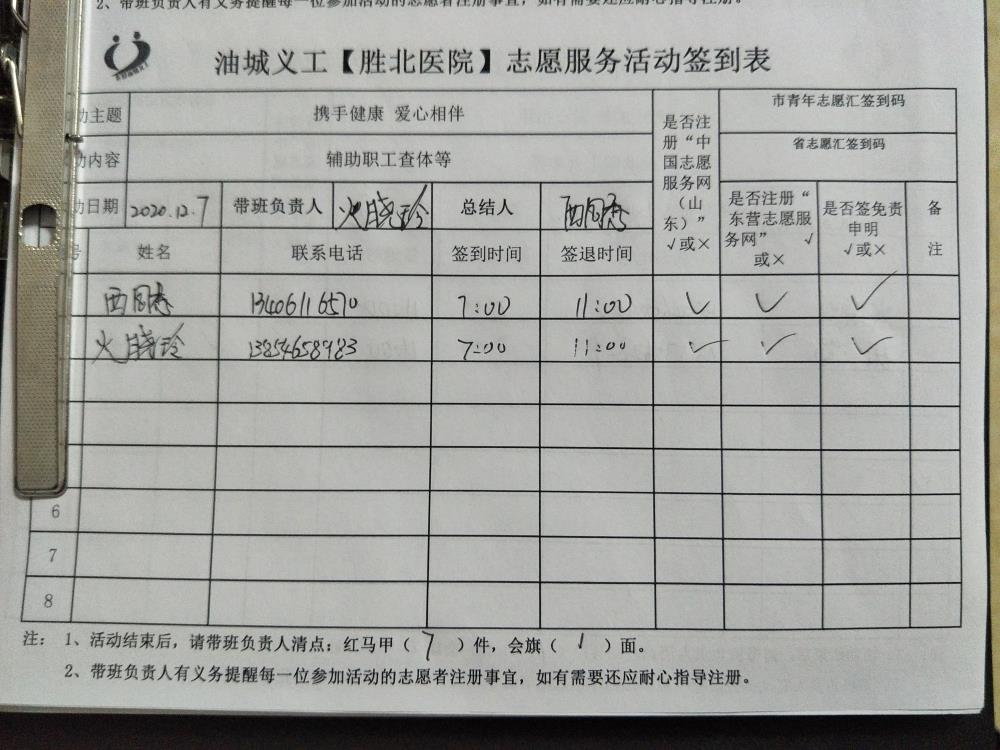 2、带班负责人有义务提醒每一位参加活动的志愿者注册事宜，如有需要还应耐心指导注册。
油城义工【胜北医院】志愿服务活动签到表
动主题 携手健康 爱心相伴
市青年志愿汇签到码
动内容 辅助职工查体等
省志愿汇签到码
动日期 2020.12.7 带班负责人 火晓玲 总结人
是否注册“中国志愿服务网（山东）”√或×
是否注册“东营志愿服务网” √或×
是否签免责申明√或×
备注
号 姓名 联系电话 签到时间 签退时间
13406116570 7:00 11:00 ✓ ✓ ✓
火晓玲 13854658983 7:00 11:00 ✓ ✓ ✓
6
7
8
注：1、活动结束后，请带班负责人清点：红马甲（ 7 ）件，会旗（ 1 ）面。
2、带班负责人有义务提醒每一位参加活动的志愿者注册事宜，如有需要还应耐心指导注册。